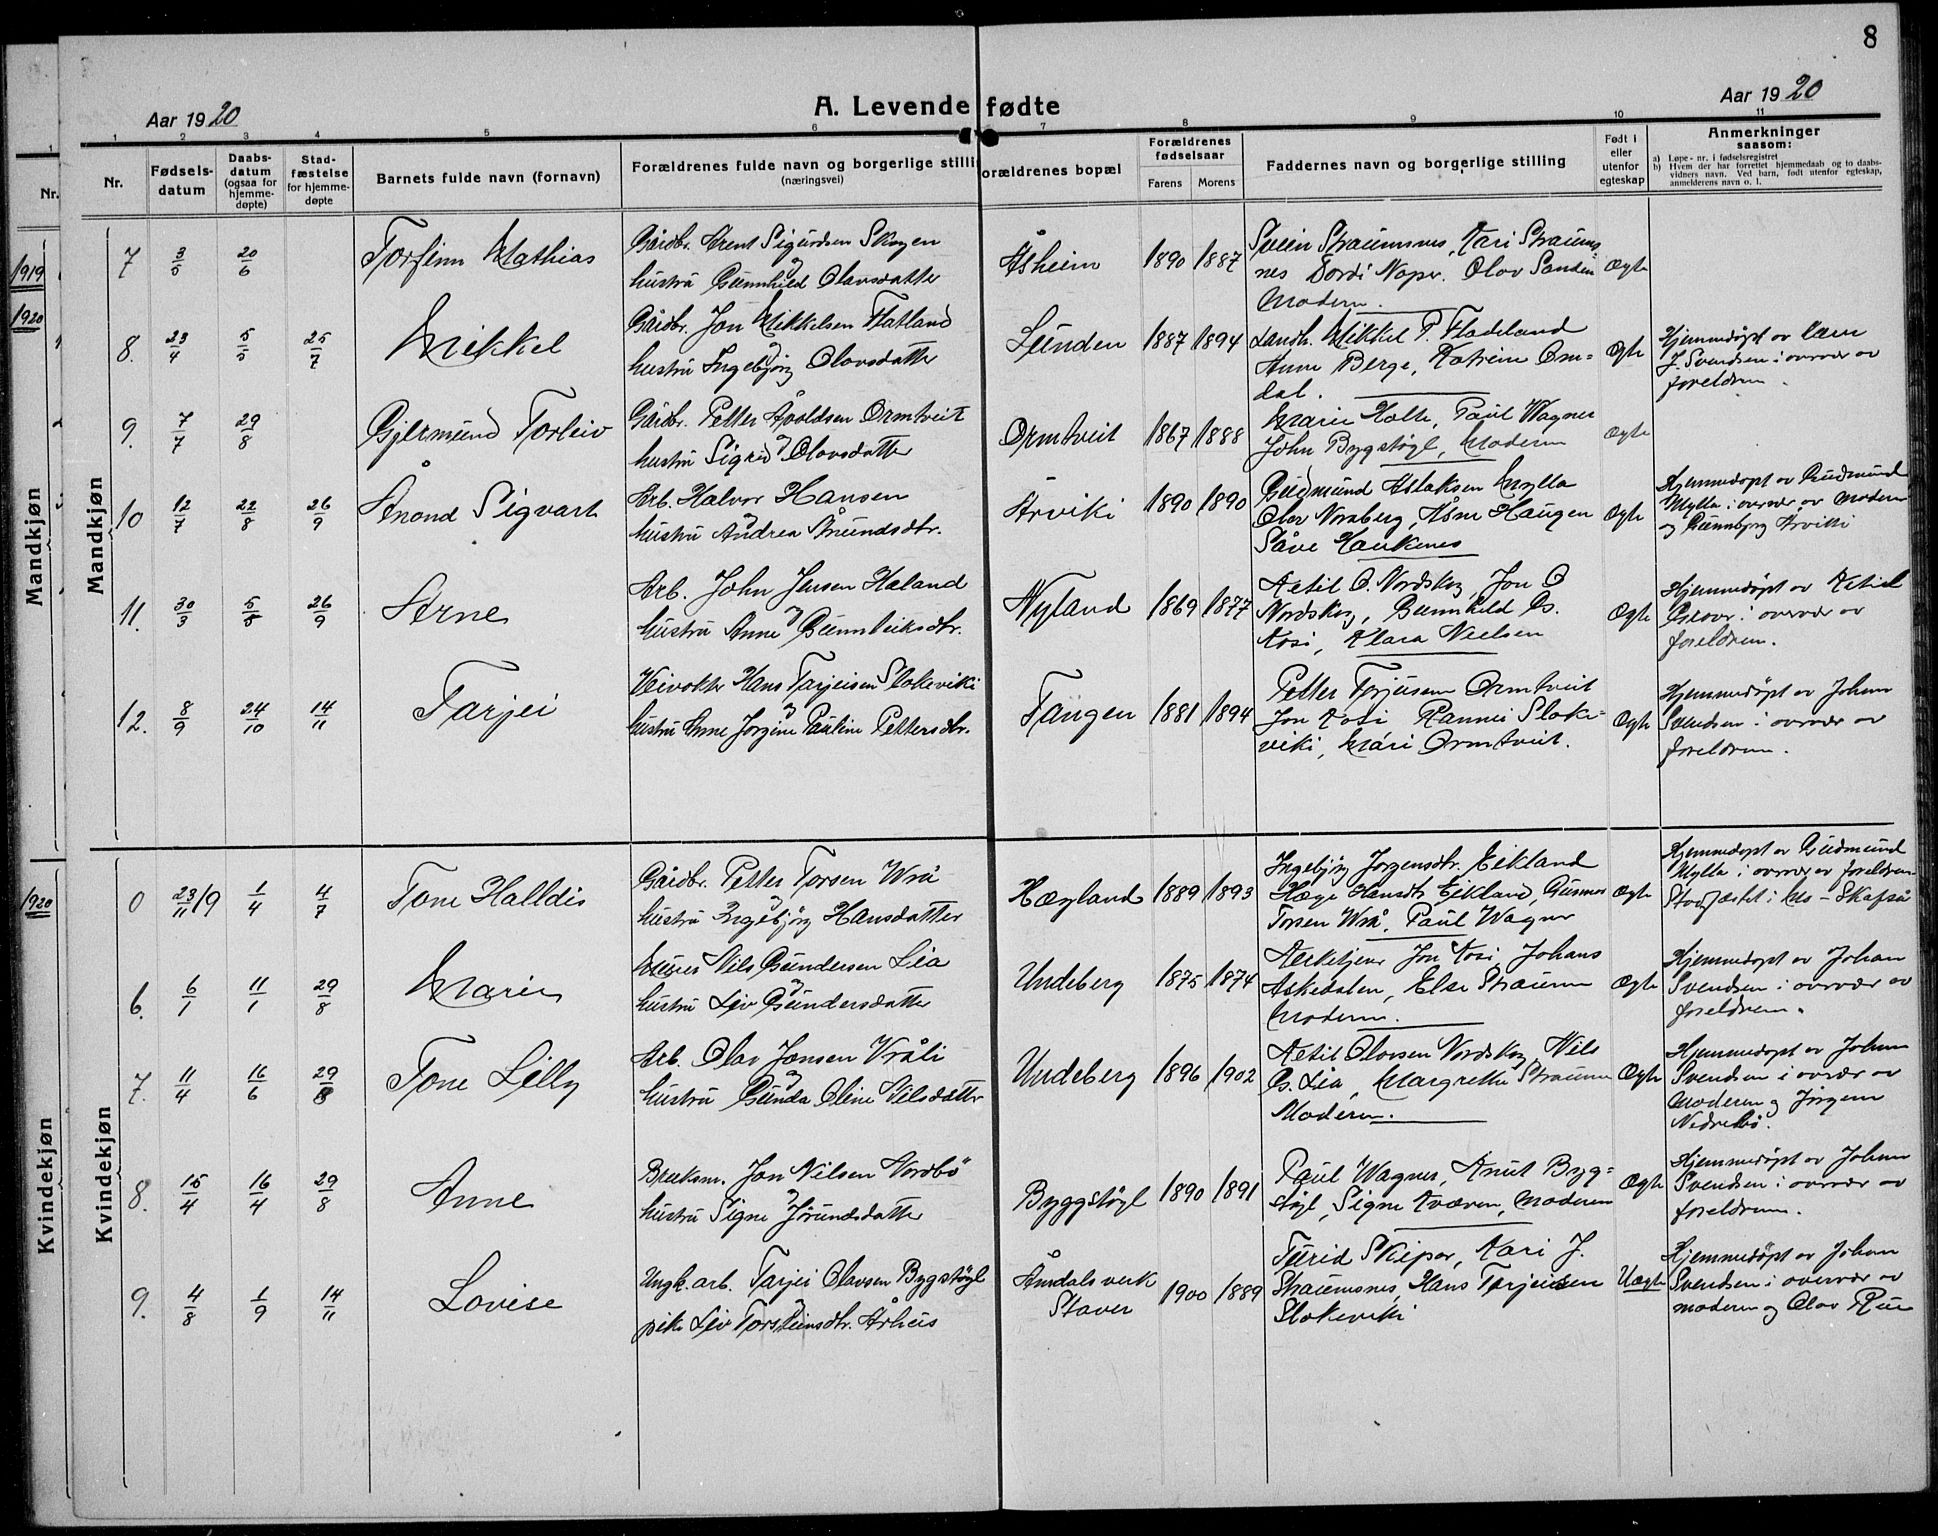 8
Aar 1920
A. Levende fødte
Aar 1920
1 2 3 4 5 6 7 8 9 10 11
Nr.
Nr.
Fødsels-
datum
Daabs-
datum
(ogsaa for
hjemme-
døpte)
Stad-
fæstelse
for hjemme-
døpte
Barnets fulde navn (fornavn)
Forældrenes fulde navn og borgerlige stilli
(næringsvei)
orældrenes bopæl
Forældrenes
fødselsaar
Farens Morens
Faddernes navn og borgerlige stilling
Født i
eller
utenfor
egteskap
Anmerkninger
saasom:
a) Løpe-nr. i fødselsregistret
b) Hvem der har forrettet hjemmedaab og to daabs-
vidners navn. Ved barn, født utenfor egteskap,
anmelderens navn o. l.
1919
1920
Mandkjøn
Mandkjøn
7 3/5 20/6 Torfinn Mathias
Gårdbr. Arent Sigurdsen Skogen
hustru Gunnhild Olavsdatter
Åsheim 1890 1887
Svein Straumsnes, Kari Straums
nes Tordi Naper. Olov Sanden
Moderen.
Ægte
8. 23/4 5/5 25/7 Mikkel
Gårdbr. Jon Mikkelsen Flatland
hustru Ingebjørg Olovsdatter
Lunden 1887 1894
Landh. Mikkel P. Fladeland
Anne Berge, Katrine Om=
dal.
Ægte
Hjemmedøpt av
J. Svendsen i overvær av
foreldren.
9. 7/7 29/8 Gjermund Torleiv
Gårdbr. Petter Åvoldsen Ormtveit
hustru Sigrid Olovsdatter
Ormtveit 1867 1888
Marie Holte, Paul Wagner
John Bygstøyl, Moderen
Ægte
10 12/7 22/8 26/9 Ånond Sigvart
Arb. Halvor Hansen
hustru Andrea Ånundsdtr.
Årviki 1890 1890
Gudmund Aslaksen Mylla
Olav Norsberg, Åsne Haugen
Såve Haukenes
Ægte
Hjemmedøpt av Gudmund
Mylla i overvær av moderen
og Gunnbjørg Årviki
11. 30/3 5/8 26/9 Arne
Arb. John Jensen Haland
hustru Anne Gunnleiksdtr.
Nyland 1869 1877
Ketil O. Nordskog, Jon O
Nordskog, Gunnhild G.
Kosi, Klara Nielsen
Ægte
Hjemmedøpt av Ketil
i overvær av
foreldren.
12. 8/9 24/10 14/11 Tarjei
Veivokter Hans Tarjeisen Slokeviki
hustru Anne Jorgine Pauline Pettersdtr.
Tangen 1881 1894
Petter Terjusen Ormtveit
Jon Kosi Rannei Sloke=
viki, Mári Ormtveit.
Ægte
Hjemmedøpt av Johan
Svendsen i overvær av
foreldren.
1920
Kvindekjøn
Kvindekjøn
0 23/11 19 1/4 4/7 Tone Halldis
Gårdbr. Petter Torsen Wrå
hustru Ingebjørg Hansdatter
Hægland 1889 1893
Ingebjørg Jorgensdtr. Eikland
Hæge Hansdtr Eikland, Gunnar
Torsen Wrå, Paul Wagner
Ægte
Hjemmedøpt av Gudmund
Mylla i overvær av foreldren
Stadfæstet i Mo-Skafså
6. 6/1 11/1 29/8 Marie
Murer Nils Gundersen Lia
hustru Liv Gundersdatter
Undeberg 1875 1874
Kirketjener Jon Kosi Johans
Askedalen, Else Straume
Moderen.
Ægte
Hjemmedøpt av Johan
Svendsen i overvær av
foreldren.
7. 11/4 16/6 29/8 Tone Lilly
Arb. Olav Jonsen Vråli
hustru Gunda Oline Nilsdatter
Undeberg 1896 1902
Ketil Olovsen Nordskog, Nils
G. Lia, Margrethe Straume
Moderen.
Ægte
Hjemmedøpt av Johan
Svendsen i overvær av
moderen og Jørgen
Nedrebö.
8. 15/4 16/4 29/8 Anne
Bruksm. Jon Nilsen Nordbö
hustru Signe Jörundsdatter
Byggstøyl 1890 1891
Paul Wagner, Knut Byg=
støyl, Signe Kvæven, moderen
Ægte
Hjemmedøpt av Johan
Svendsen i overvær av
foreldren.
9. 4/8 1/9 14/11 Lovise
Ungk. arb. Tarjei Olavsen Bygstøyl
pike Liv Torsteinsdtr. Århus
Åmdals verk
Staver
1900 1889
Turid Skiper, Kari J.
Straumsnes, Hans Tarjeisen
Slokeviki
Uægte
Hjemmedøpt av Johan
Svendsen i overvær av
moderen og Olov Rui